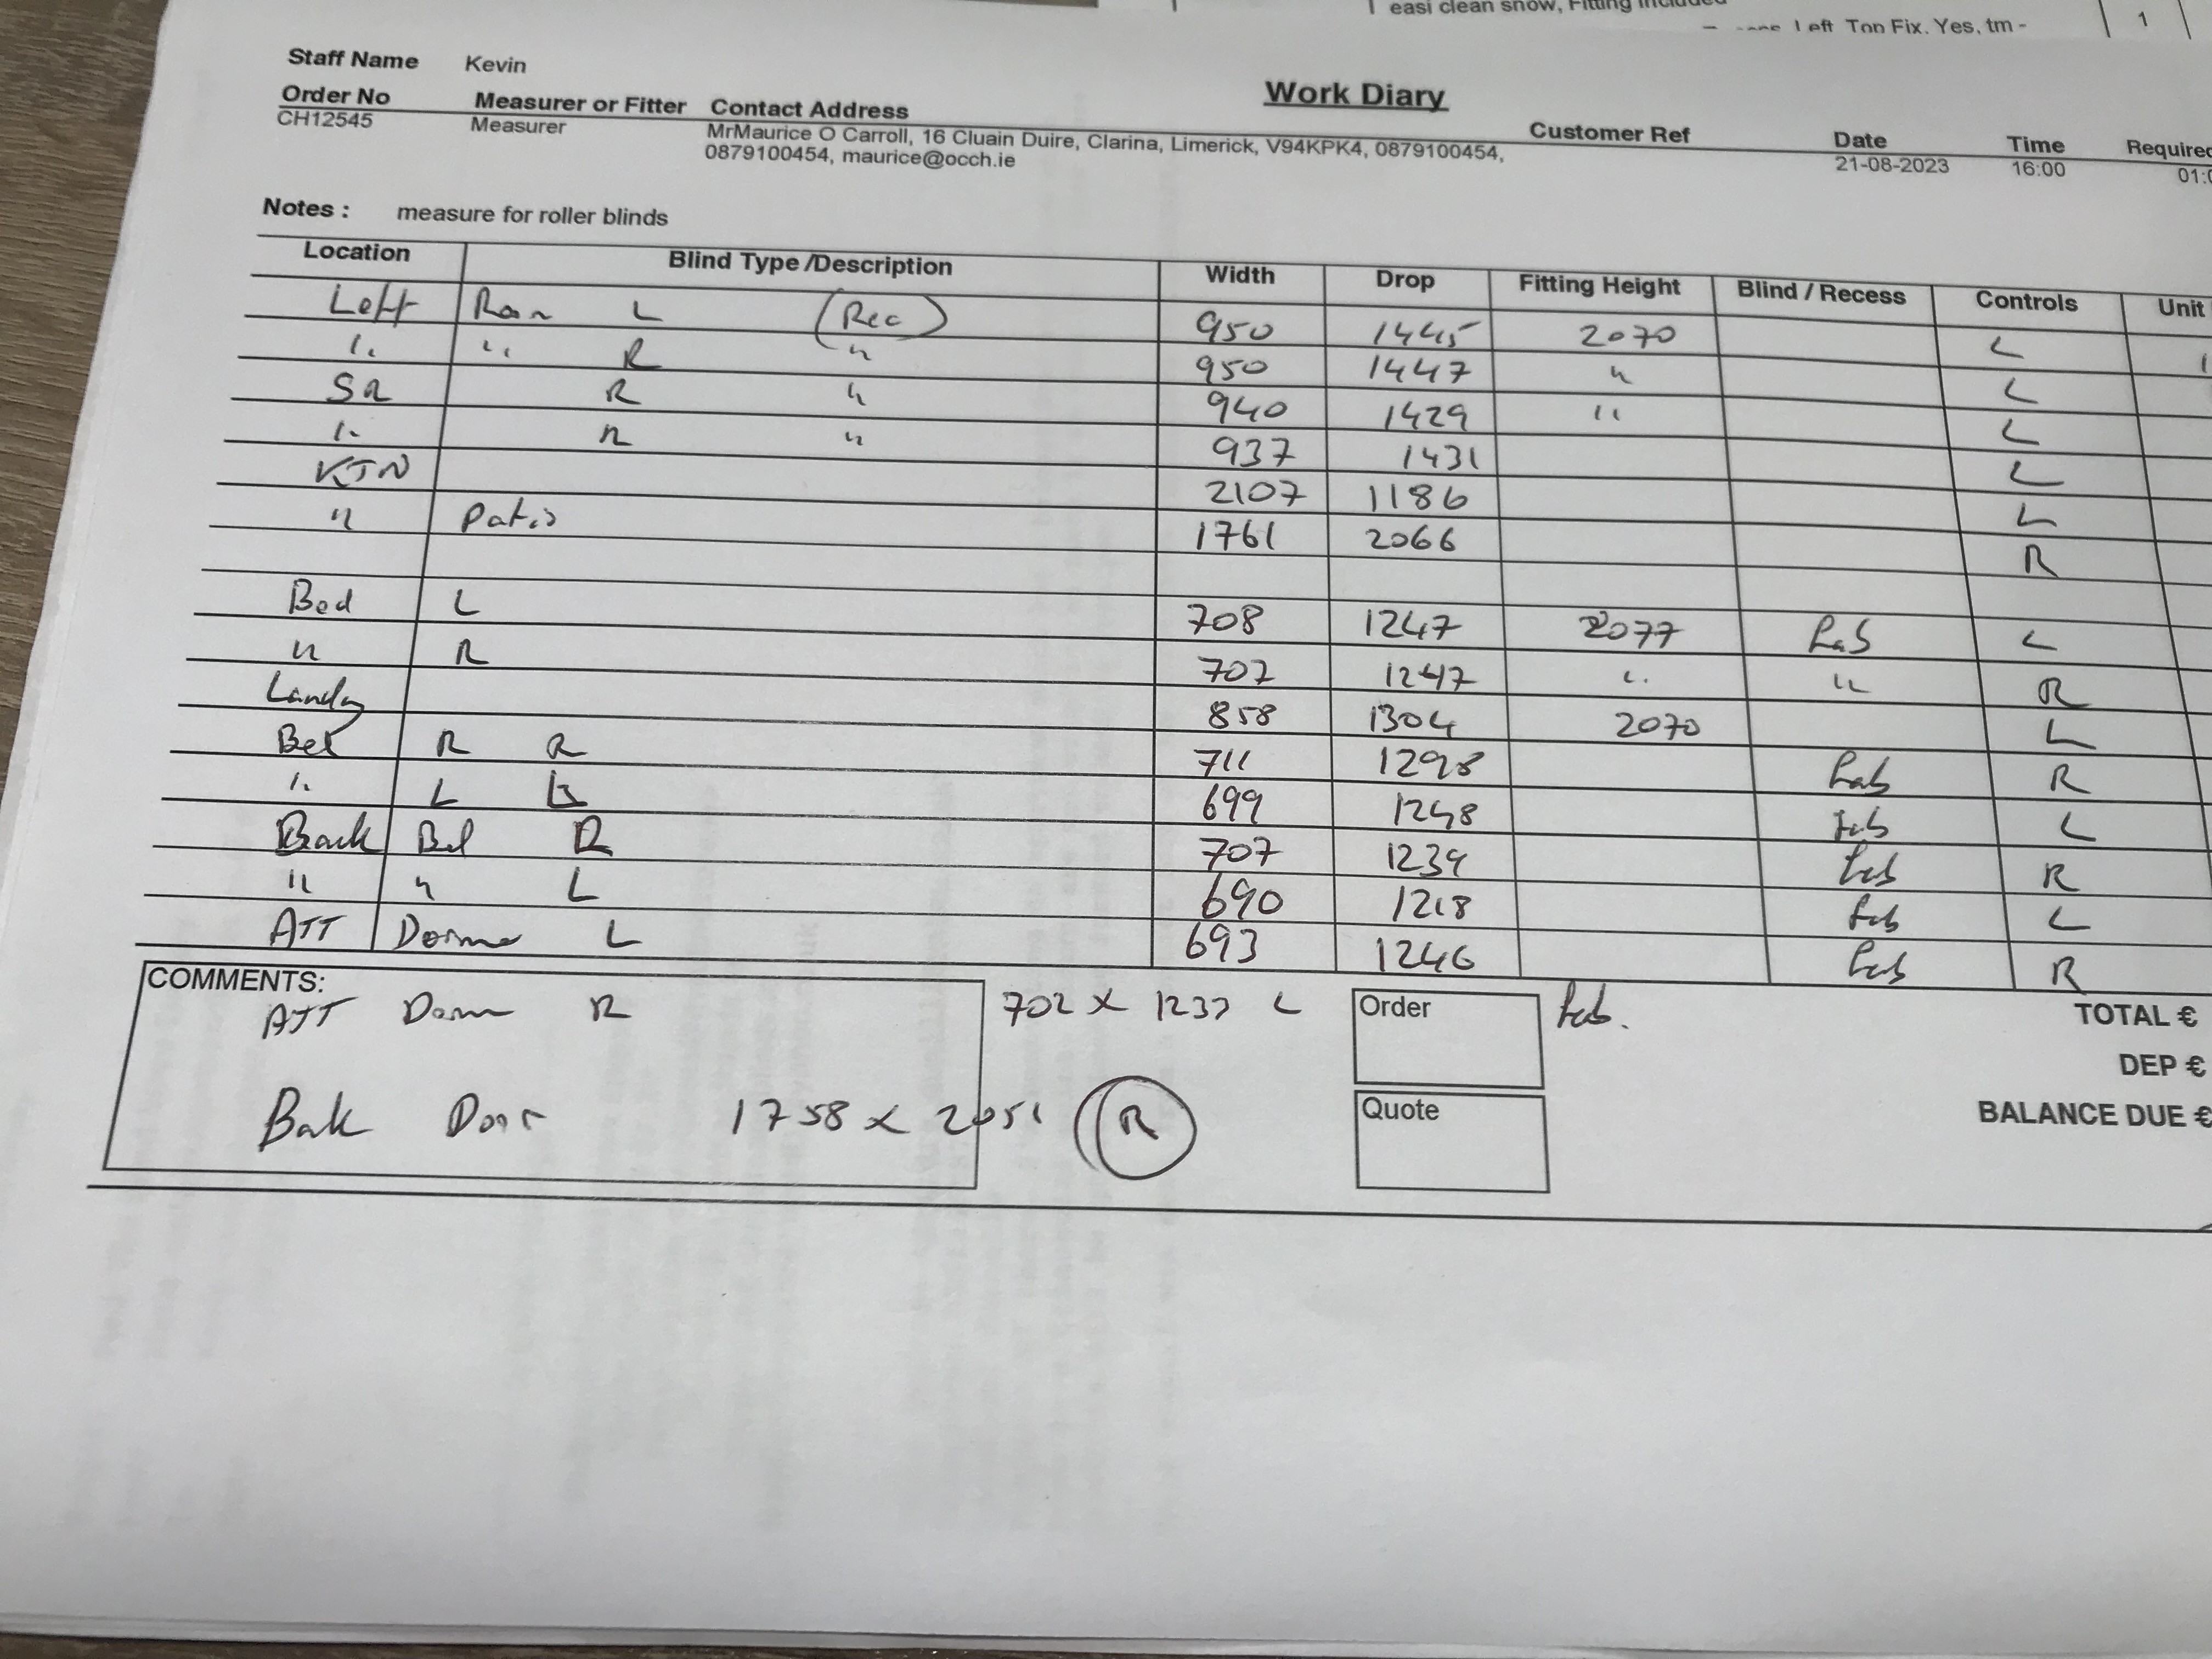 easi clean snow, Fitting Included
Left Top Fix. Yes, tm - 1
Staff Name Kevin
Work Diary
Order No Measurer or Fitter Contact Address Customer Ref Date Time Required
CH12545 Measurer MrMaurice O Carroll, 16 Cluain Duire, Clarina, Limerick, V94KPK4, 0879100454, 21-08-2023 16:00 01:0
0879100454, maurice@occh.ie
Notes : measure for roller blinds
Location Blind Type /Description Width Drop Fitting Height Blind / Recess Controls Unit
Left L (Rec) 950 1445 2070 L
" " R " 950 1447 " L
R " 940 1429 " L
" R " 937 1431 L
KTN 2107 1186 L
" Patio 1761 2066 R
Bed L 708 1247 2077 L
" R 707 1247 " " R
858 1304 2070 L
R R 711 1298 R
" L 699 1248 L
Back R 707 1239 R
" " L 690 1218 L
ATT L 693 1246 R
COMMENTS:
ATT R 702 x L Order TOTAL €
DEP €
Door 1758 x 2051 R Quote BALANCE DUE €